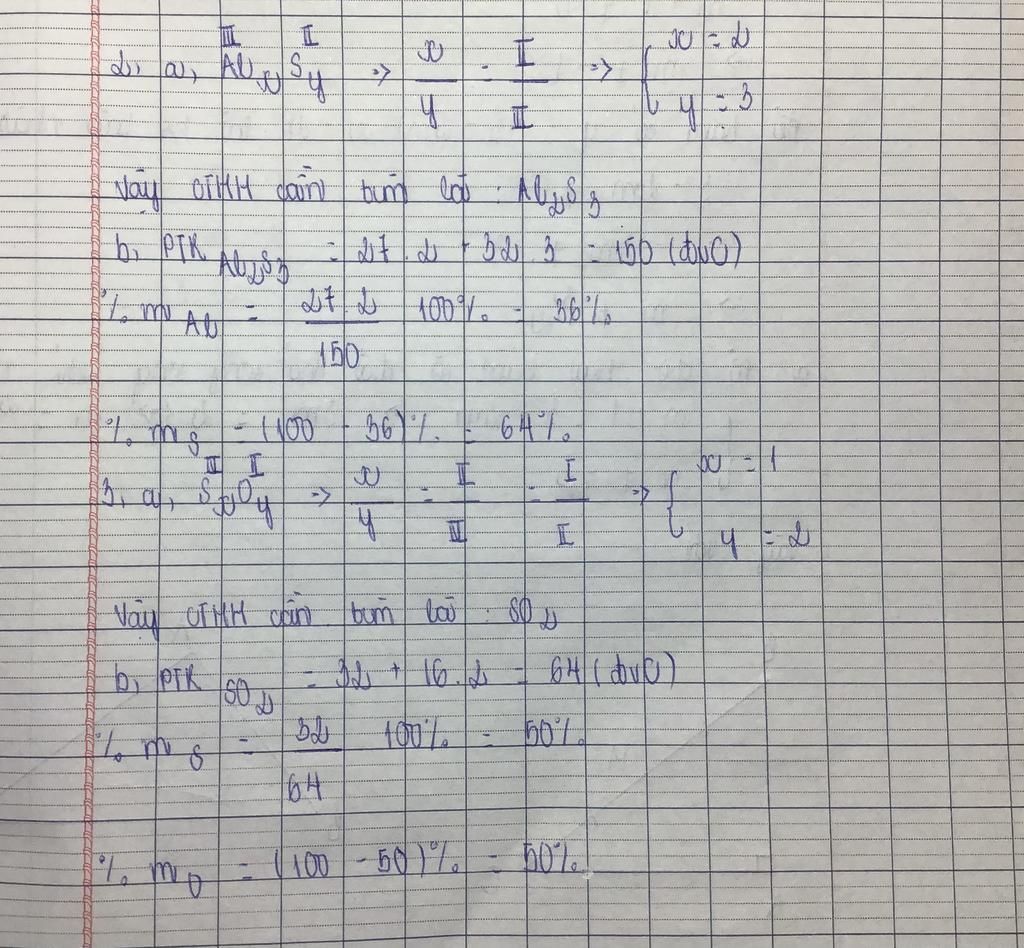 III II
2, a, AlxSy => x/y = II/III => { x = 2
y = 3
Vậy CTHH cần tìm là : Al2S3
b, PTK Al2S3 = 27 . 2 + 32 . 3 = 150 (đvC)
% m Al = 27 . 2 / 150 . 100% = 36%
% m S = (100 - 36)% = 64%
IV II
3, a, SxOy => x/y = II/IV = I/II => { x = 1
y = 2
Vậy CTHH cần tìm là : SO2
b, PTK SO2 = 32 + 16 . 2 = 64 (đvC)
% m S = 32 / 64 . 100% = 50%
% m O = (100 - 50)% = 50%